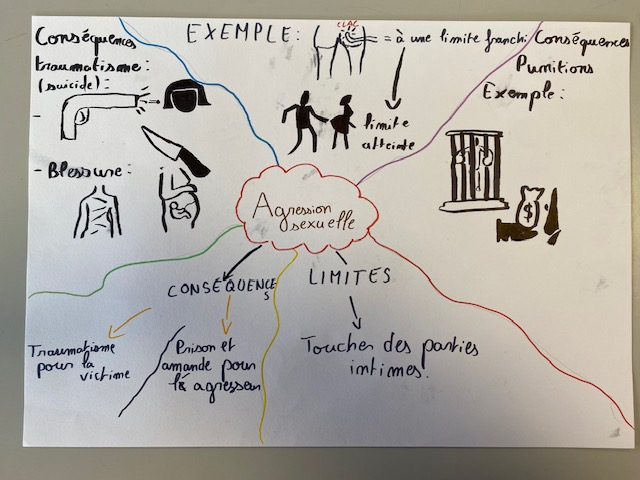 Conséquences
traumatisme:
(suicide):
-
- Blessure:
EXEMPLE:
CLAC
= à une limite franchi
limite
atteinte
Conséquences
Punitions
Exemple:
$
Agression
sexuelle
CONSÉQUENCES
LIMITES
Traumatisme
pour la
victime
Prison et
amande pour
l'agresseur
Toucher des parties
intimes!